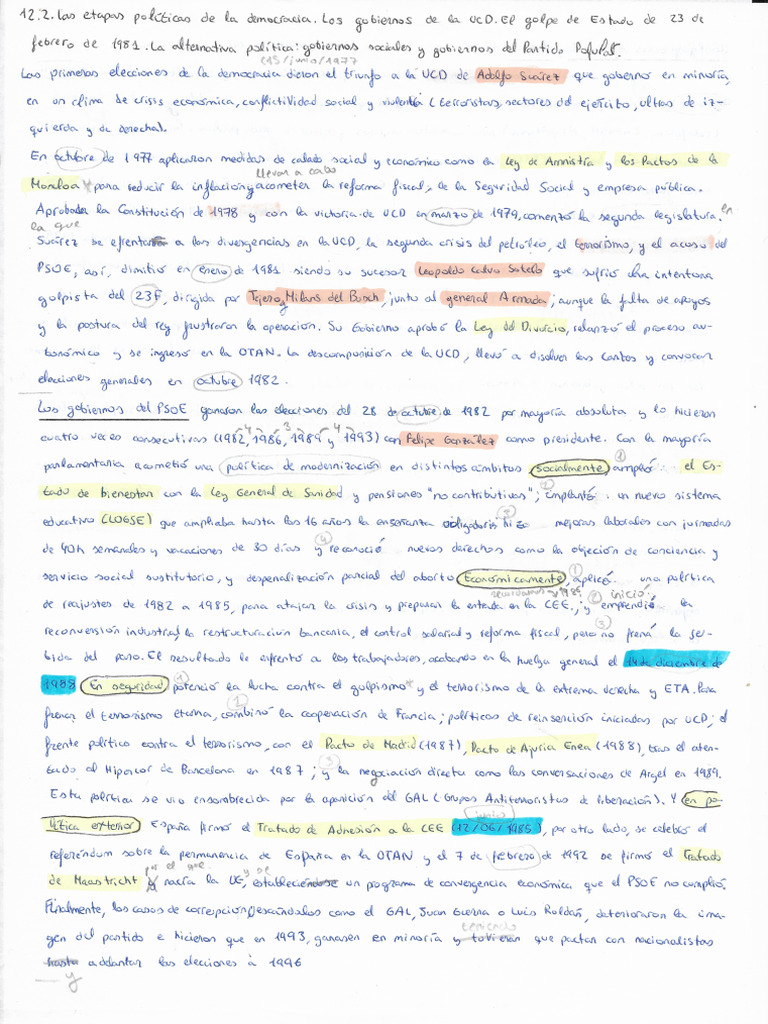 12.2. Las etapas políticas de la democracia. Los gobiernos de la UCD. El golpe de Estado de 23 de
febrero de 1981. La alternativa política: gobiernos sociales y gobiernos del Partido Popular.
(15/junio/1977
Las primeras elecciones de la democracia dieron el triunfo a la UCD de Adolfo Suárez que gobernó en minoría,
en un clima de crisis económica, conflictividad social y violenta (terroristas, sectores del ejército, ultras de iz-
quierda y da derecha).
En octubre de 1977 aplicaron medidas de calado social y económico como la Ley de Amnistía y los Pactos de la
llevar a cabo
Moncloa para reducir la inflación y acometer la reforma fiscal, de la Seguridad Social y empresa pública.
Aprobada la Constitución de 1978 y con la victoria de UCD en marzo de 1979, comenzó la segunda legislatura. en
la que
Suárez se efrentar a las divergencias en la UCD, la segunda crisis del petróleo, el terrorismo, y el acoso del
PSOE, así, dimitió en enero de 1981 siendo su sucesor Leopoldo Calvo Sotelo que sufrió una intentona
golpista del 23F, dirigida por Tejero y Milans del Bosch, junto al general Armada; aunque la falta de apoyos
y la postura del rey frustraron la operación. Su Gobierno aprobó la Ley del Divorcio, relanzó el proceso au-
tonómico y se ingresó en la OTAN. La descomposición de la UCD, llevó a disolver las Cortes y convocar
elecciones generales en octubre 1982.
Los gobiernos del PSOE ganaron las elecciones del 28 de octubre de 1982 por mayoría absoluta y lo hicieron
4 3 4
cuatro veces consecutivas (1982, 1986, 1989 y 1993) con Felipe González como presidente. Con la mayoría
parlamentaria acometió una política de modernización en distintos ámbitos, socialmente, ① amplió el Es-
tado de bienestar con la Ley General de Sanidad y pensiones "no contributivas"; ② implantó un nuevo sistema
educativo (LOGSE) que ampliaba hasta los 16 años la enseñanza obligatoria ③ hizo mejoras laborales con jornadas
de 40h semanales y vacaciones de 30 días ④ y reconoció nuevos derechos como la objeción de conciencia y
servicio social sustitutorio, y despenalización parcial del aborto Económicamente, ① aplicó una política
1985 ② inició;
de reajustes de 1982 a 1985, para atajar la crisis y preparar la entrada en la CEE, ; y emprendió la
③
reconversión industrial, la restructuración bancaria, el control salarial y reforma fiscal, pero no frenó la su-
bida del paro. El resultado le efrentó a los trabajadores, acabando en la huelga general el 14 de diciembre de
1988 En seguridad, ① potenció la lucha contra el golpismo y el terrorismo de la extrema derecha y ETA. Para
②
frenar el terrorismo etarra, combinó la cooperación de Francia; políticas de reinserción iniciadas por UCD; el
frente político contra el terrorismo, con el Pacto de Madrid (1987), Pacto de Ajuria Enea (1988), tras el aten-
③
tado al Hipercor de Barcelona en 1987; y la negociación directa como las conversaciones de Argel en 1989.
Esta política se vio ensombrecida por la aparición del GAL (Grupos Antiterroristas de liberación). Y en po-
junio
lítica exterior España firmó el Tratado de Adhesión a la CEE (12/06/1985), por otro lado, se celebró el
referéndum sobre la permanencia de España en la OTAN y el 7 de febrero de 1992 se firmó el Tratado
por el que y se
de Maastricht y nacía la UE, estableciéndose un programa de convergencia económica que el PSOE no cumplió.
Finalmente, los casos de corrupción/escándalos como el GAL, Juan Guerra o Luis Roldán, deterioraron la ima-
teniendo
gen del partido e hicieron que en 1993, ganasen en minoría y tuvieran que pactar con nacionalistas
hasta adelantar las elecciones a 1996
y